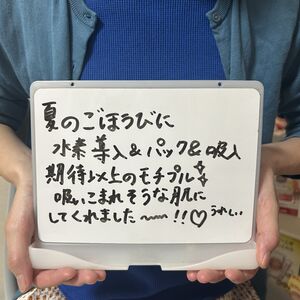 夏のごほうびに
水素導入&パック&吸入
期待以上のモチプル
吸いこまれそうな肌に
してくれました〜!!♡ うれしい